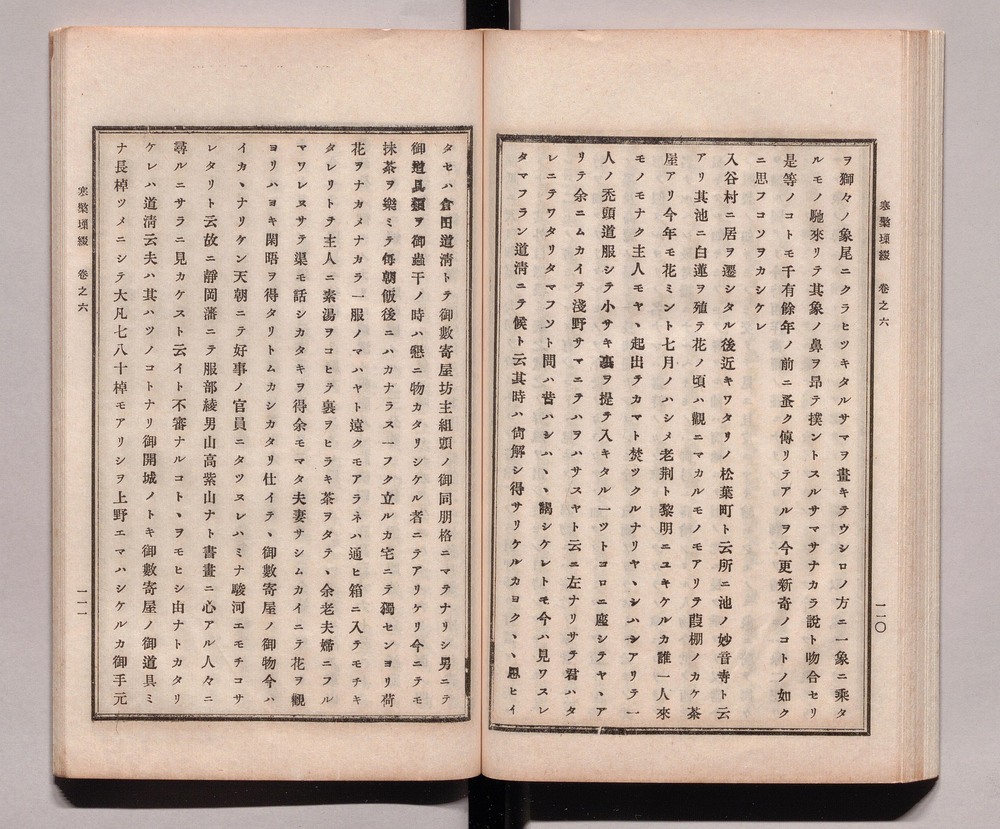 寒檠璅綴 卷之六
一一〇
ヲ獅々ノ象尾ニクラヒツキタルサマヲ畫キテウシロノ方ニ一象ニ乘タ
ルモノ馳來リテ其象ノ鼻ヲ昂テ撲ントスルサマサナカラ說ト吻合セリ
是等ノコトモ千有餘年ノ前ニ蚤ク傳リテアルヲ今更新奇ノコトノ如ク
ニ思フコソヲカシケレ
入谷村ニ居ヲ遷シタル後近キワタリノ松葉町ト云所ニ池ノ妙音寺ト云
アリ其池ニ白蓮ヲ殖テ花ノ頃ハ觀ニマカルモノモアリテ葭棚ノカケ茶
屋アリ今年モ花ミント七月ノハシメ老荆ト黎明ニユキケルカ誰一人來
モノモナク主人モヤヽ起出テカマト焚ツクルナリヤヽシハシアリテ一
人ノ禿頭道服シテ小サキ裹ヲ提テ入キタル一ツトコロニ座シテヤヽア
リテ余ニムカイテ淺野サマニテハヲハサスヤト云ニ左ナリサテ君ハタ
レニテワタリタマフント問ハ昔ハシハヽ謁シケレトモ今ハ見ワスレ
タマフラン道淸ニテ候ト云其時ハ尙解シ得サリケルカヨクヽ思ヒイ
タセハ倉田道淸トテ御數寄屋坊主組頭ノ御同朋格ニマテナリシ男ニテ
御道具類ヲ御蟲干ノ時ハ懇ニ物カタリシケル者ニテアリケリ今ニテモ
抹茶ヲ樂ミテ每朝飯後ニハカナラス一フク立ルカ宅ニテ獨センヨリ荷
花ヲナカメナカラ一服ノマハヤト遠クモアラネハ通ヒ箱ニ入テモチキ
タレリトテ主人ニ素湯ヲコヒテ裹ヲヒラキ茶ヲタテヽ余老夫婦ニフル
マワレヌサテ渠モ話シカタキヲ得余モマタ夫妻サシムカイニテ花ヲ觀
ヨリハヨキ閑晤ヲ得タリトムカシカタリ仕イテヽ御數寄屋ノ御物今ハ
イカヽナリケン天朝ニテ好事ノ官員ニタツヌレハミナ駿河エモチコサ
レタリト云故ニ靜岡藩ニテ服部綾男山高紫山ナト書畫ニ心アル人々ニ
尋ルニサラニ見カケスト云イト不審ナルコトヽヲモヒシ由ナトカタリ
ケレハ道淸云夫ハ其ハツノコトナリ御開城ノトキ御數寄屋ノ御道具ミ
ナ長棹ツメニシテ大凡七八十棹モアリシヲ上野エマハシケルカ御手元
寒檠璅綴 卷之六
一一一